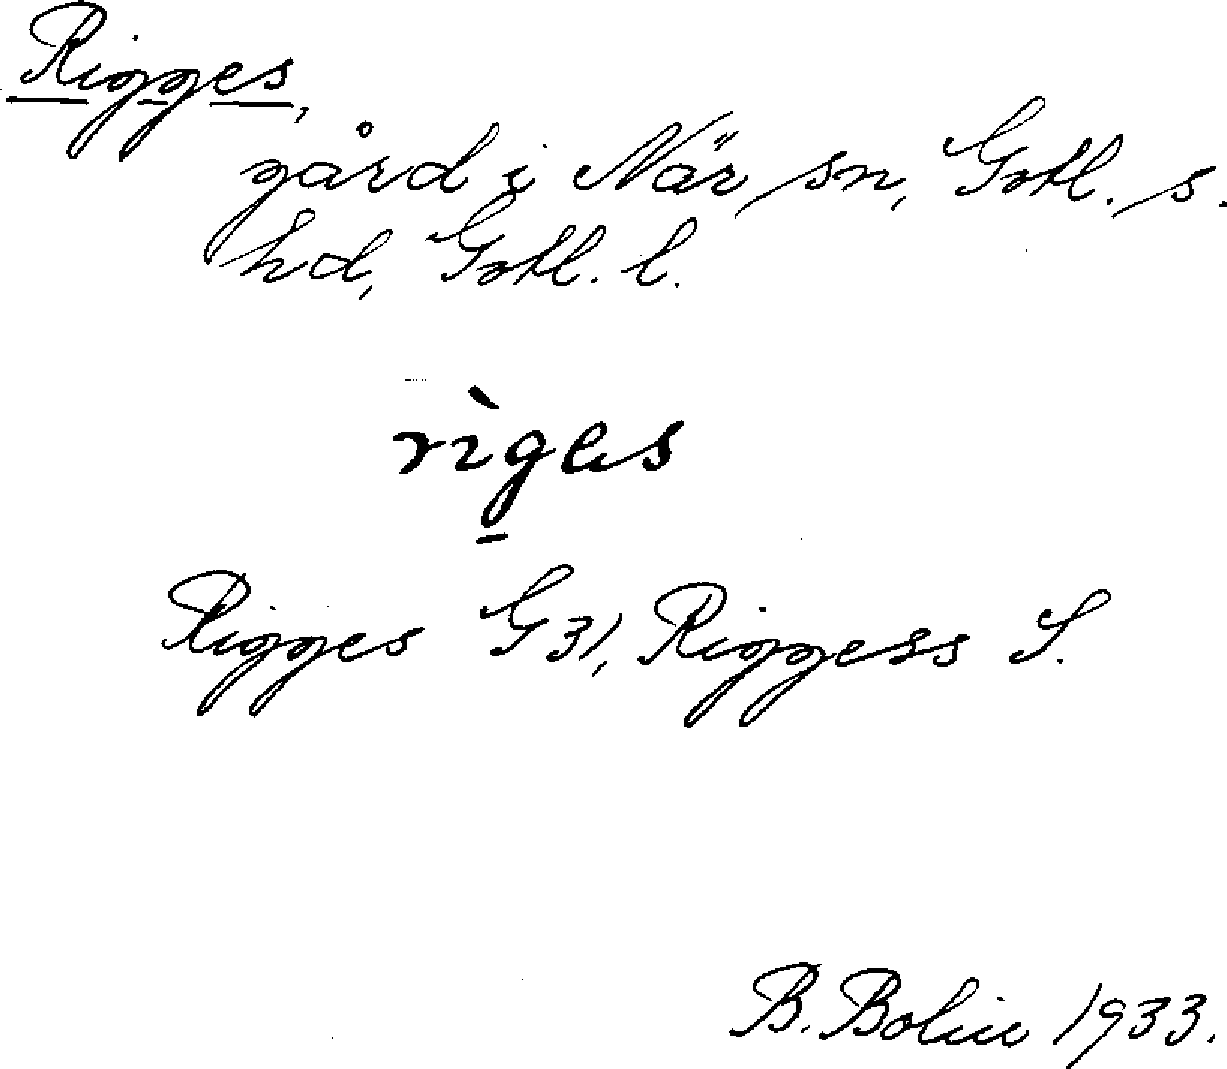 Rigges,
gård i När sn, Gotl. s.
hd, Gotl. l.
rìges
Rigges G31, Riggess S.
B. Bolin 1933.